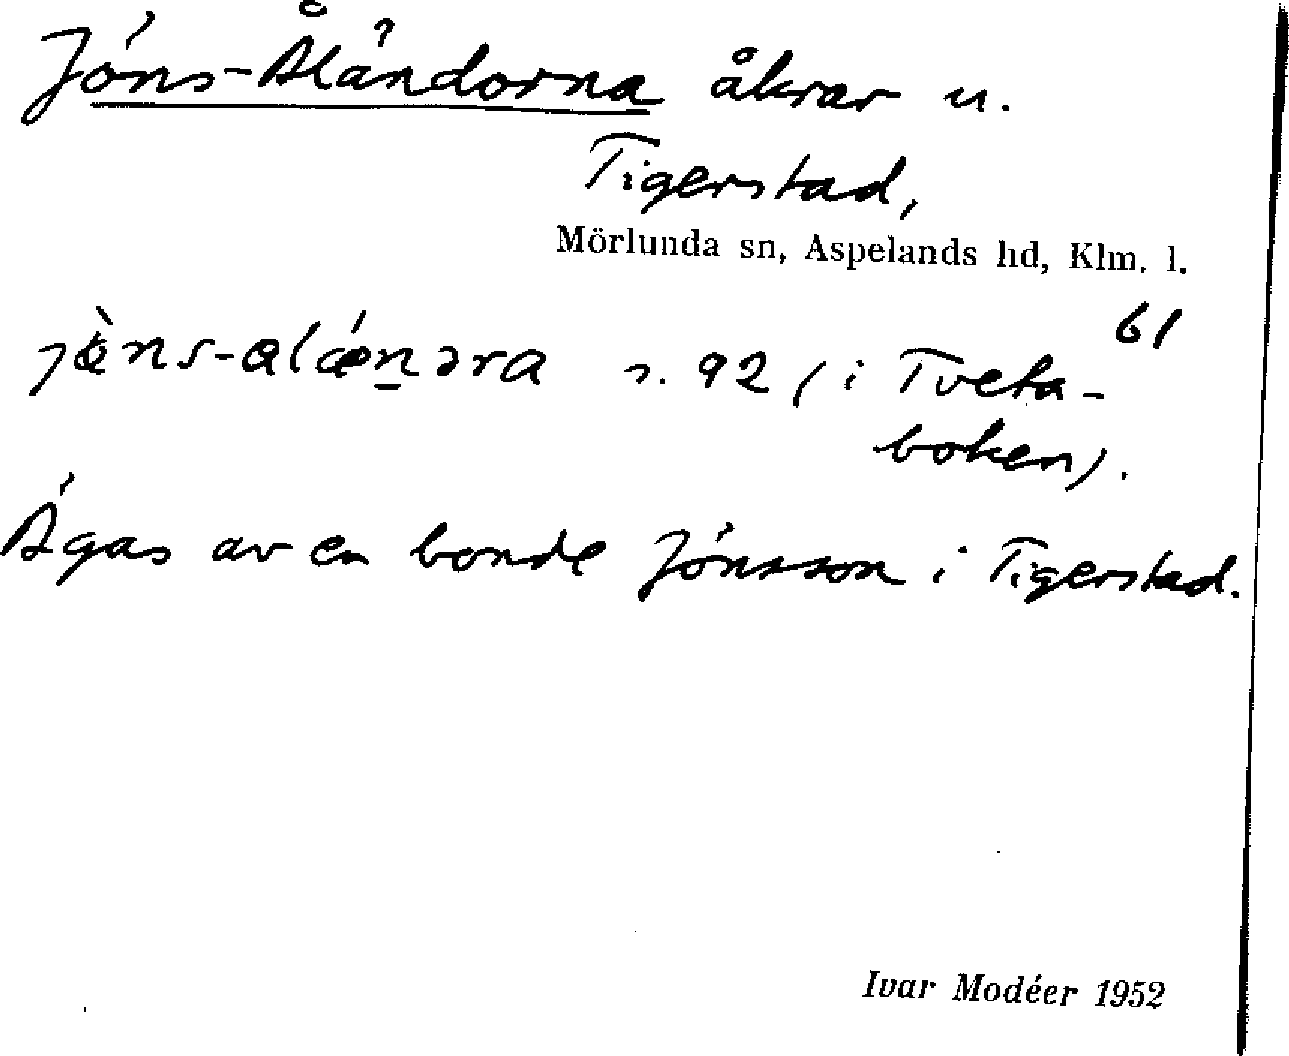 Jöns-Åländorna åkrar u.
Tigerstad,
Mörlunda sn, Aspelands hd, Klm. l.
61
s. 92 (i Tveta-
boken).
Ägas av en bonde Jönsson i Tigerstad.
Ivar Modéer 1952